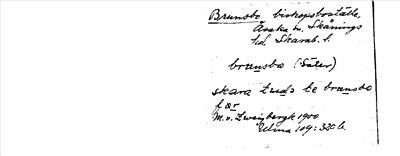 Brunsbo biskopsboställe,
Åsaka sn. Skånings
hd. Skarab. l.
brunsbo (Säter)
skara te brunsbo
M. v. Zweigbergk 1900
Ulma 109: 330 b.